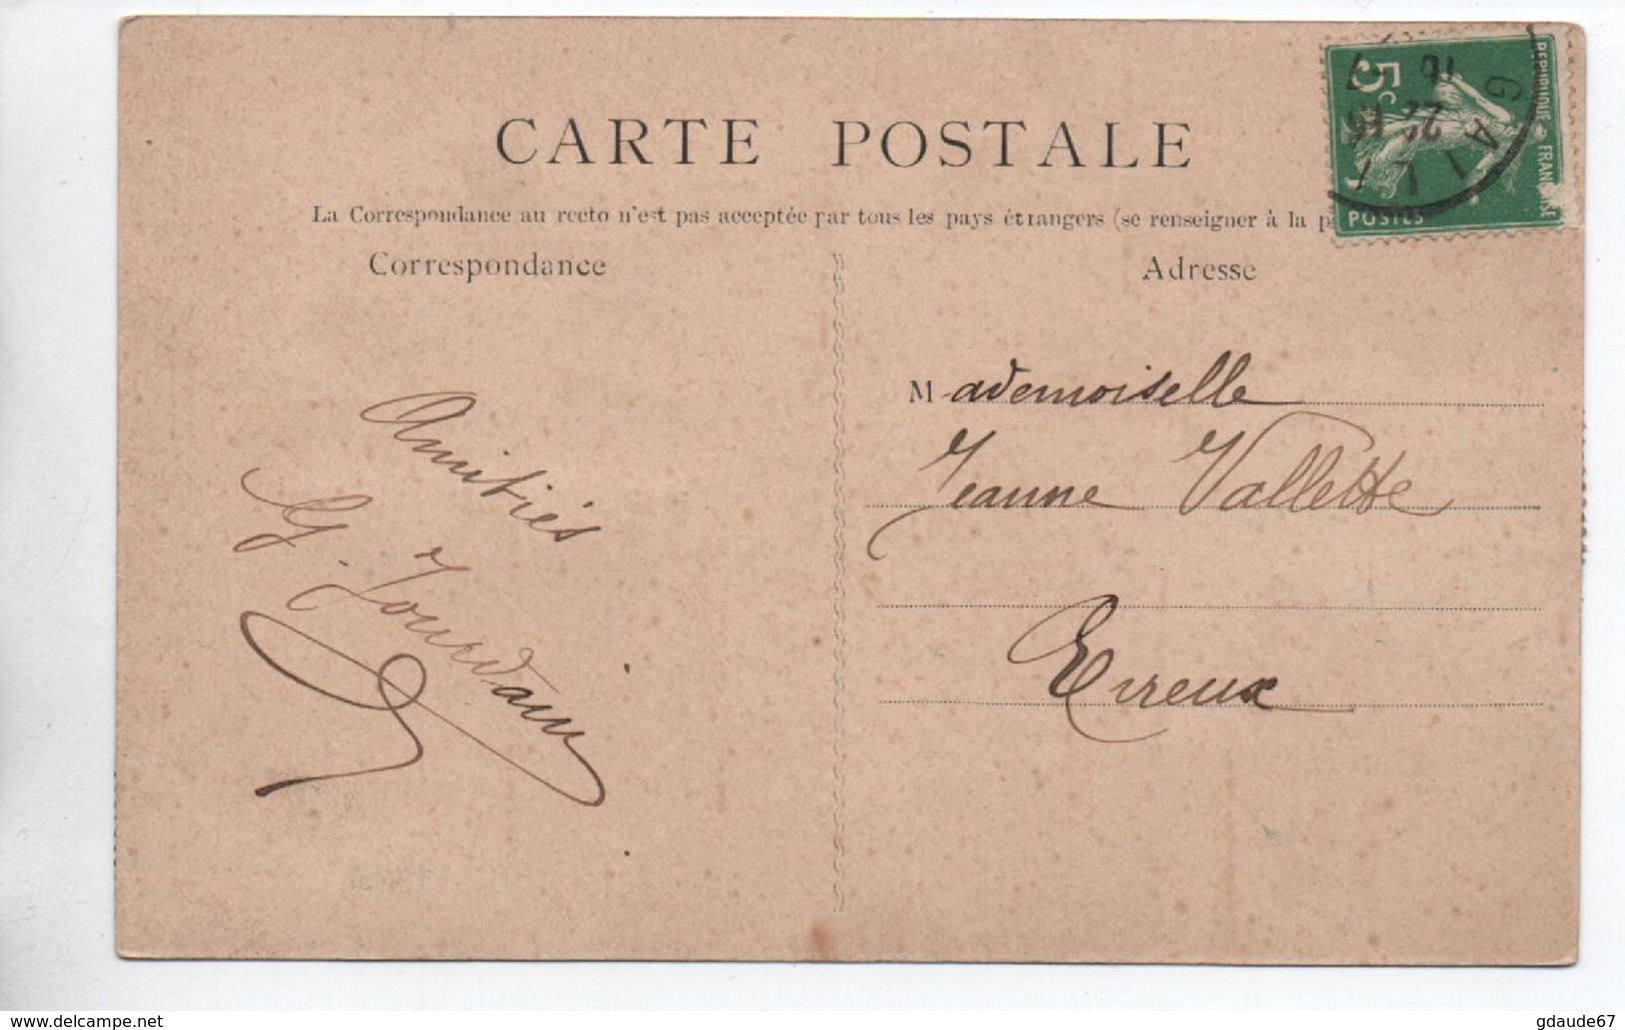 CARTE POSTALE
La Correspondance au recto n'est pas acceptée par tous les pays étrangers (se renseigner à la p
Correspondance
Adresse
REPUBLIQUE FRANÇAISE
5c
POSTES
GAILL
16
22
Mademoiselle
Jeanne Vallette
Evreux
Amitiés
G. Jourdain
www.delcampe.net
gdaude67